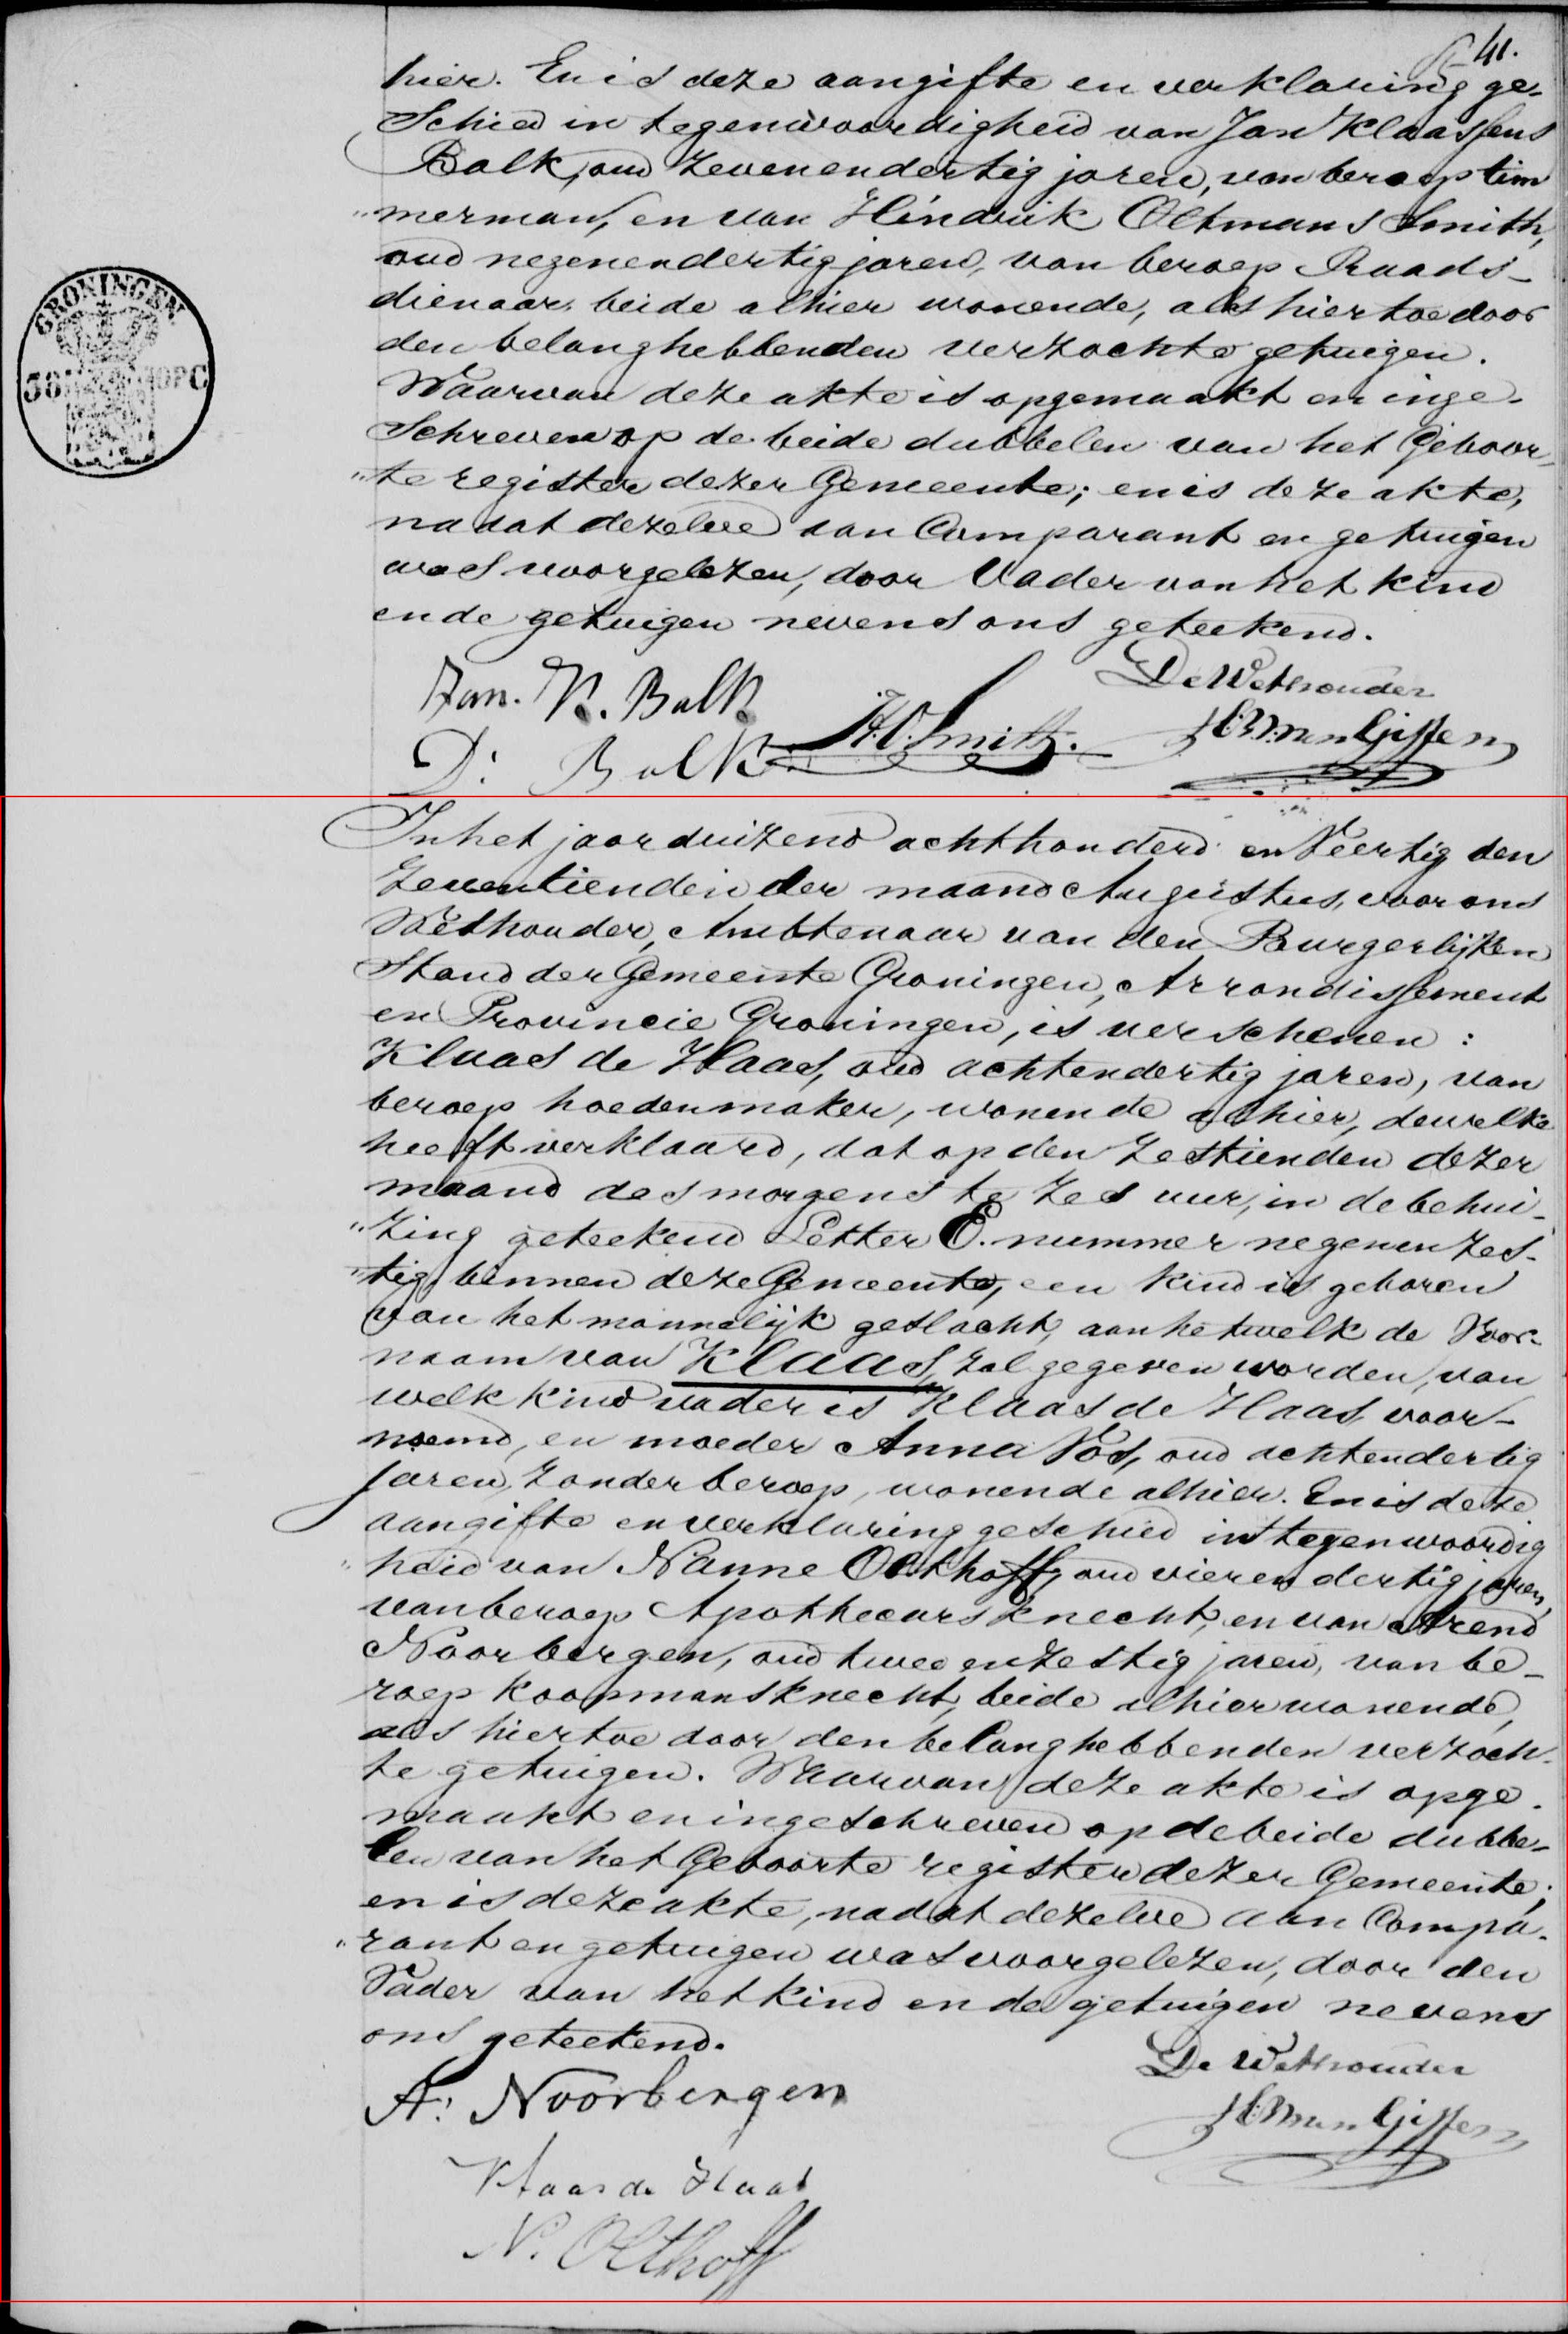 41.
hier. En is deze aangifte en verklaring ge-
schied in tegenwoordigheid van Jan Klaassens
Balk, oud zevenendertig jaren, van beroep tim
"merman, en van Hindrik Oltmans Smith,
oud negenendertig jaren, van beroep Raads-
dienaar, beide alhier wonende, als hiertoe door
den belanghebbenden verzochte getuigen.
Waarvan deze akte is opgemaakt en inge-
schreven op de beide dubbelen van het Geboor-
"te register dezer Gemeente; en is deze akte,
nadat dezelve aan Comparant en getuigen
was voorgelezen, door Vader van het kind
en de getuigen nevens ons geteekend.
De Wethouder
Jan. K. Balk
H.O. Smith.
D: Balk
GRONINGEN
In het jaar duizend achthonderd en Veertig den
Zeventienden der maand Augustus, voor ons
Wethouder, Ambtenaar van den Burgerlijken
Stand der Gemeente Groningen, Arrondissement
en Provincie Groningen, is verschenen:
Klaas de Haas, oud achtendertig jaren, van
beroep hoedenmaker, wonende alhier, dewelke
heeft verklaard, dat op den Zestienden dezer
maand des morgens te zes uur, in de behui-
"zing geteekend Letter E. nummer negenenzes-
"tig binnen deze Gemeente, een kind is geboren
van het mannelijk geslacht, aan hetwelk de Voor-
naam van Klaas, zal gegeven worden, van
welk kind vader is Klaas de Haas, voor-
noemd, en moeder Anna Vos, oud achtendertig
Jaren, zonder beroep, wonende alhier. En is deze
aangifte en verklaring geschied in tegenwoordig
"heid van Nanne Olthoff, oud vierendertig jaren,
van beroep Apothecarsknecht, en van Arend
Noorbergen, oud tweeenzestig jaren, van be-
roep koopmansknecht, beide alhier wonende,
als hiertoe door den belanghebbenden verzoch-
te getuigen. Waarvan deze akte is opge-
maakt en ingeschreven op de beide dubbe-
len van het Geboorte register dezer Gemeente;
en is deze akte, nadat dezelve aan Compa-
"rant en getuigen was voorgelezen, door den
Vader van het kind en de getuigen nevens
ons geteekend.
De Wethouder
A: Noorbergen
Klaas de Haas
N. Olthoff